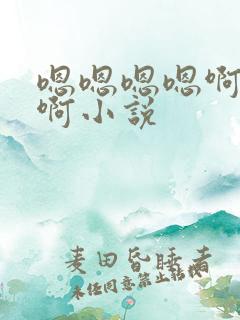 嗯嗯嗯嗯啊
啊小说
麦田昏睡者
未经同意禁止转载